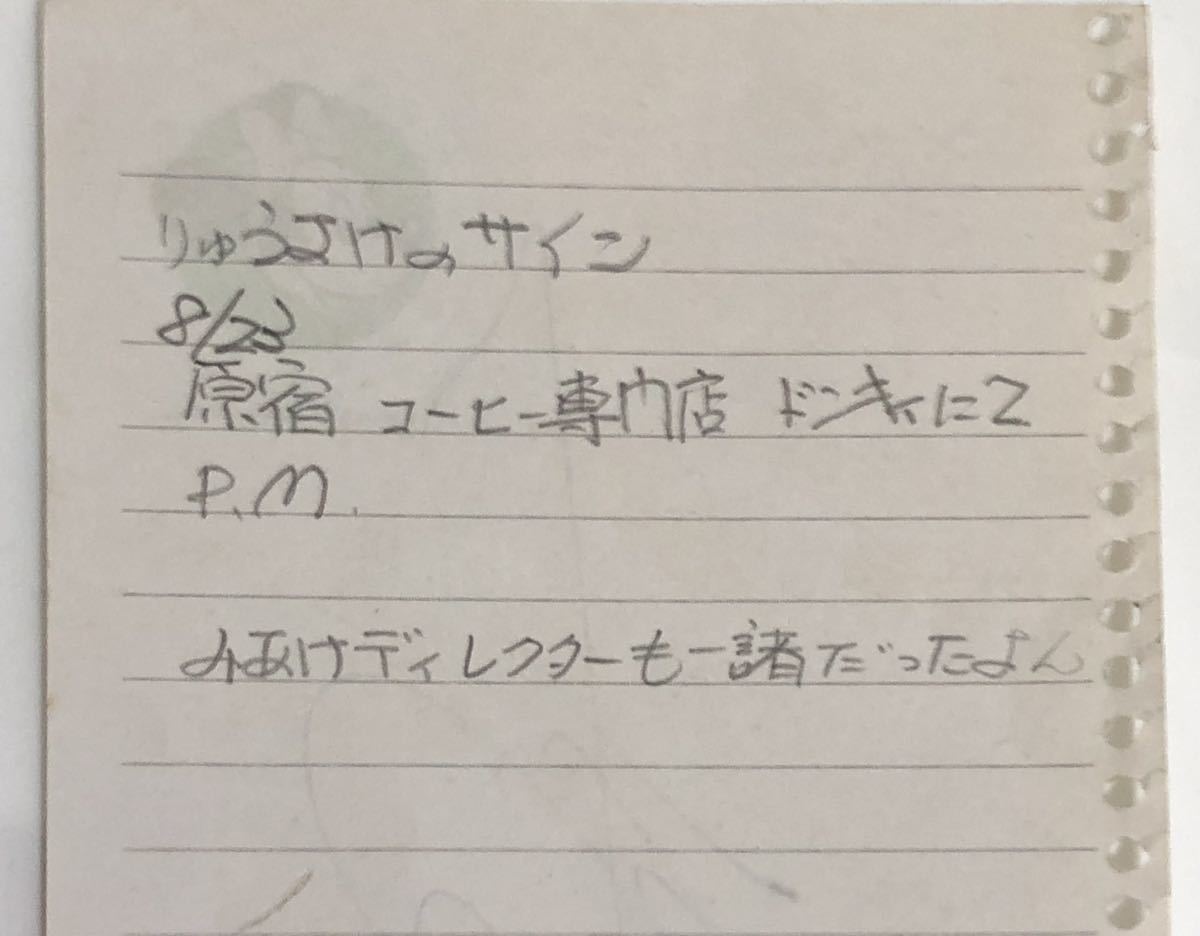 りゅうすけのサイン
8/23
原宿 コーヒー専門店 ドンキィにて
P.M.
みあけディレクターも一諸だったよん